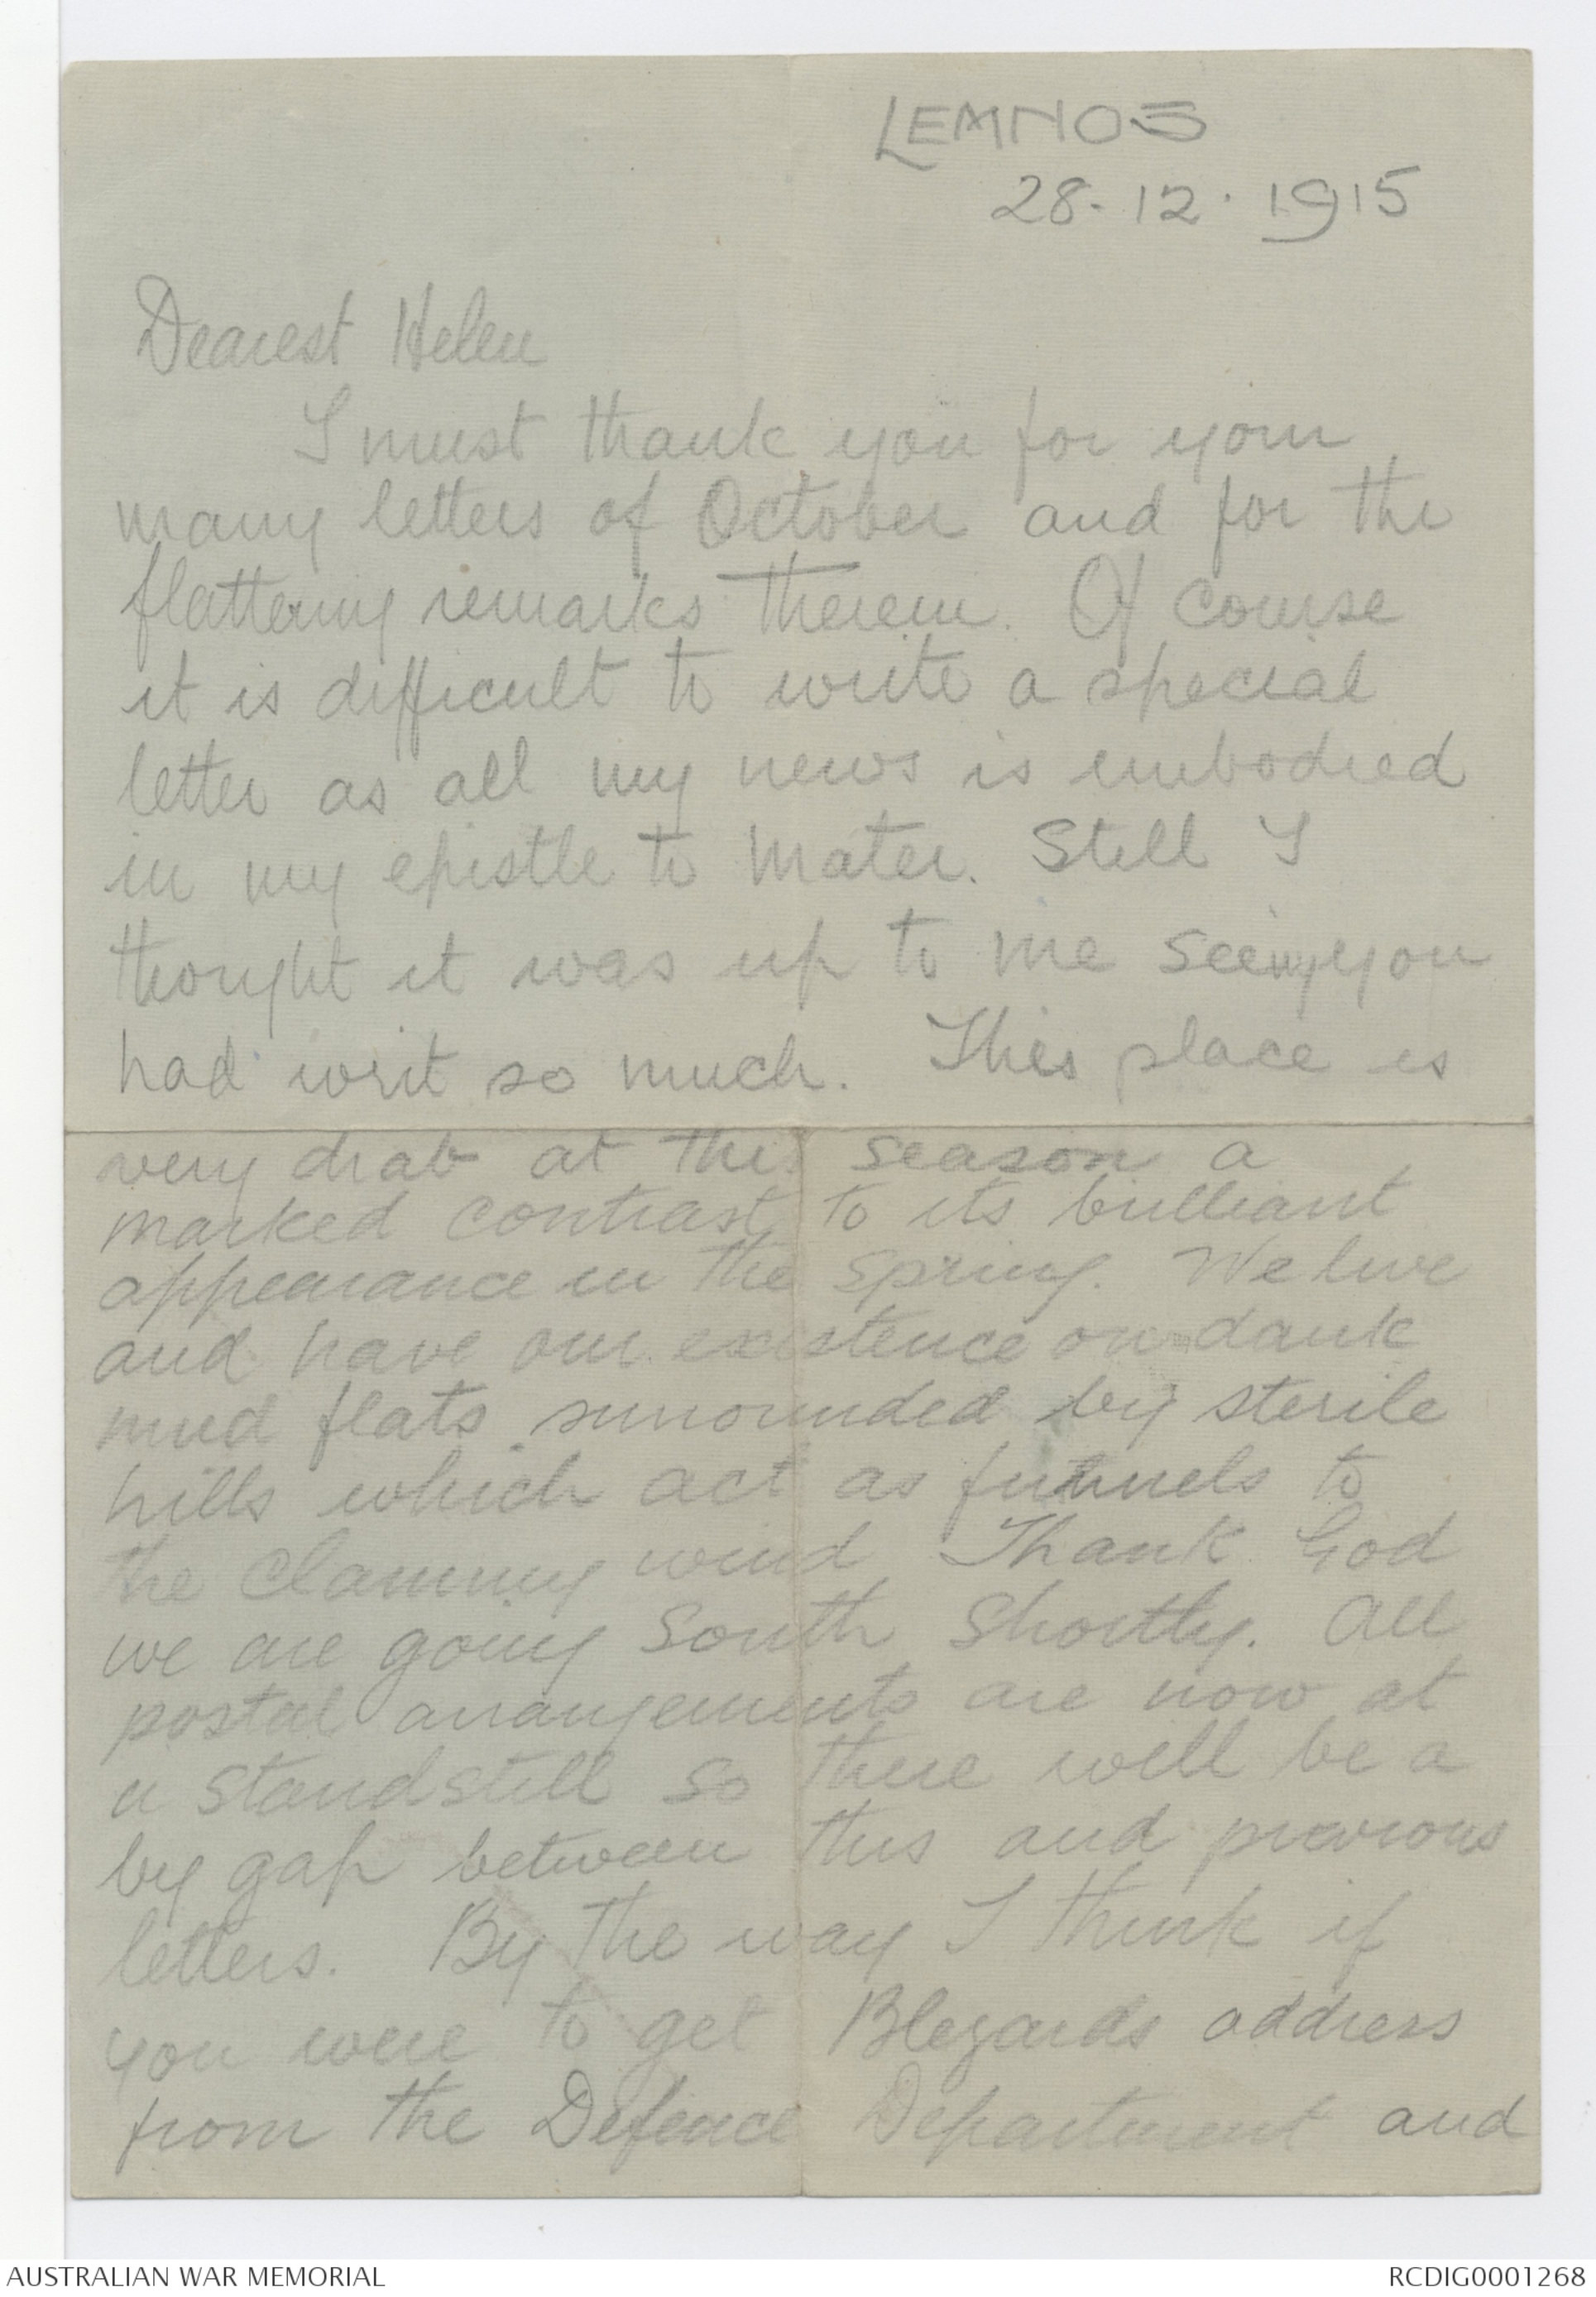 LEMNOS
28.12.1915
Dearest Helen
I must thank you for your
many letters of October and for the
flattering remarks therein. Of course
it is difficult to write a special
letter as all my news is embodied
in my epistle to Mater. Still I
thought it was up to me seeing you
had writ so much. This place is
very drab at this season a
marked contrast to its brilliant
appearance in the spring. We live
and have our existence on dank
mud flats surrounded by sterile
hills which act as funnels to
the clammy wind. Thank God
we are going South shortly. All
postal arrangements are now at
a standstill so there will be a
by gap between this and previous
letters. By the way I think if
you were to get Blezards address
from the Defence Department and
AUSTRALIAN WAR MEMORIAL
RCDIG0001268